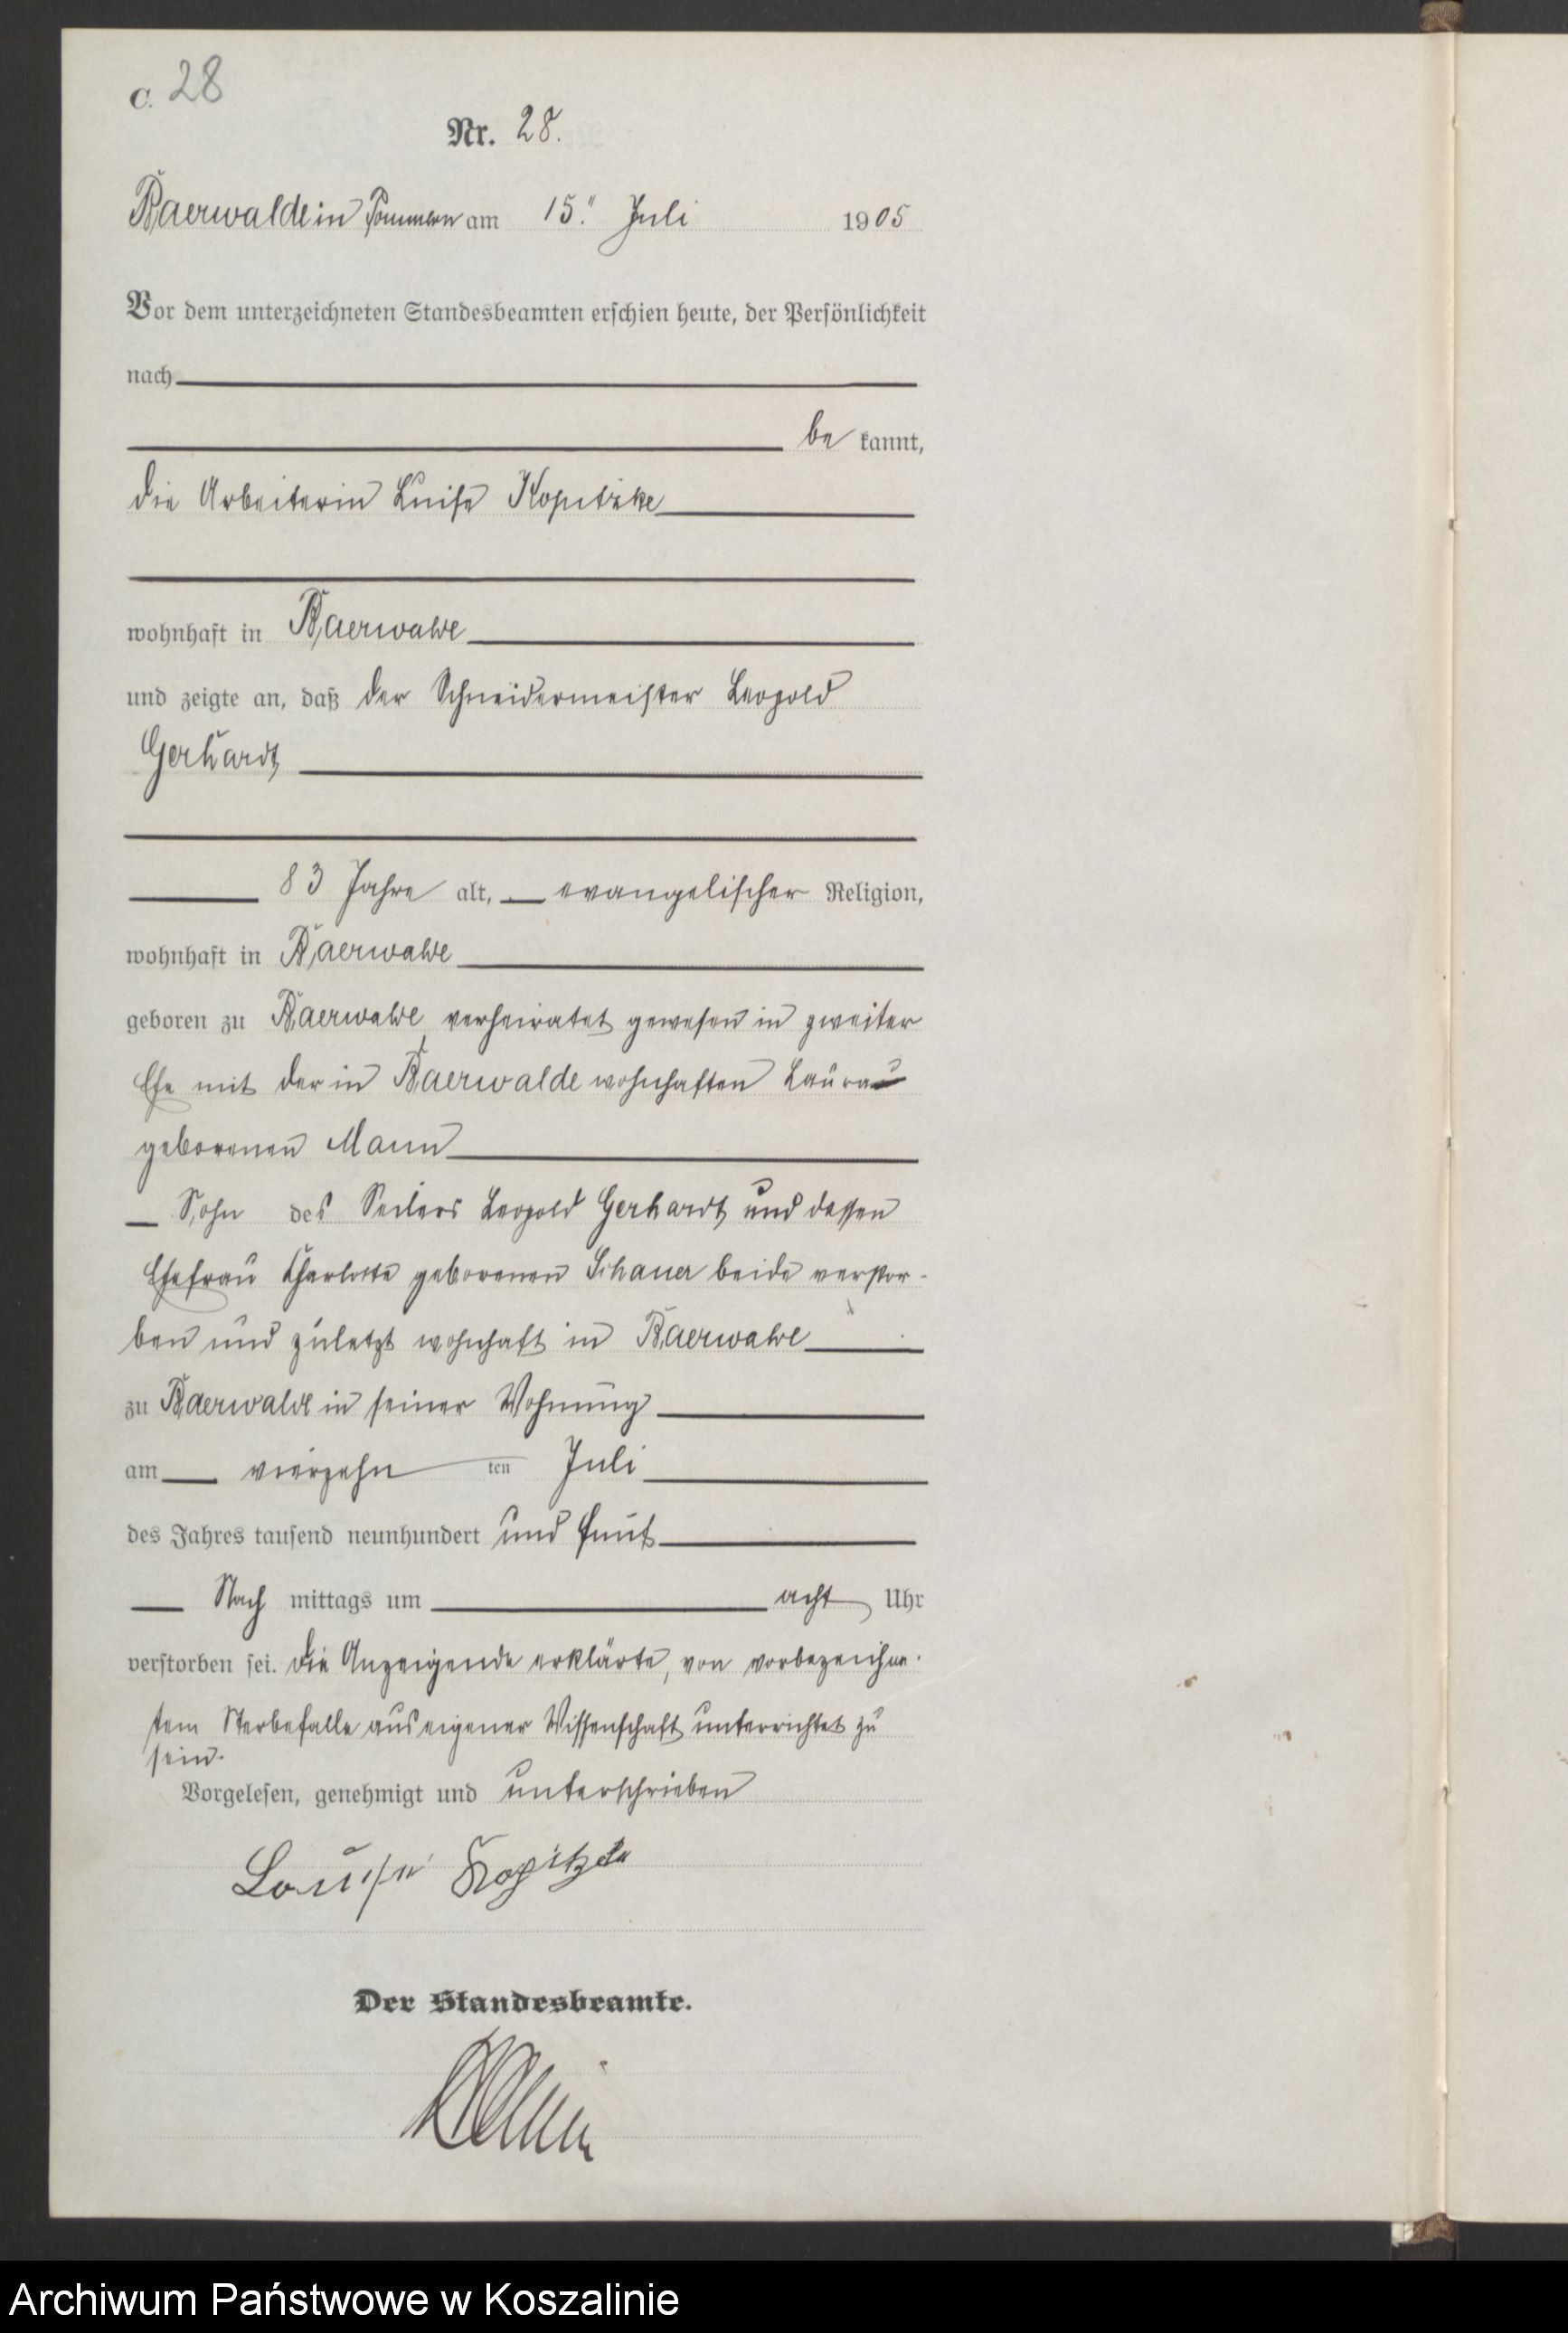 C. 28
Nr. 28.
Baerwalde in Pommern am 15. Juli 1905
Vor dem unterzeichneten Standesbeamten erschien heute, der Persönlichkeit
nach
be kannt,
die Arbeiterin Luise Kopitzke
wohnhaft in Baerwalde
und zeigte an, daß der Schneidermeister Leopold
Gerhardt
83 Jahre alt, evangelischer Religion,
wohnhaft in Baerwalde
geboren zu Baerwalde, verheiratet gewesen in zweiter
Ehe mit der in Baerwalde wohnhaften Laura
geborenen Mann
Sohn des Seilers Leopold Gerhardt und dessen
Ehefrau Charlotte geborenen Schauer beide verstor-
ben und zuletzt wohnhaft in Baerwalde
zu Baerwalde in seiner Wohnung
am vierzehn ten Juli
des Jahres tausend neunhundert und fünf
Nach mittags um acht Uhr
verstorben sei. Die Anzeigende erklärte, von vorbezeichne-
tem Sterbefalle aus eigener Wissenschaft unterrichtet zu
sein.
Vorgelesen, genehmigt und unterschrieben
Louise Kopitzke
Der Standesbeamte.
Archiwum Państwowe w Koszalinie